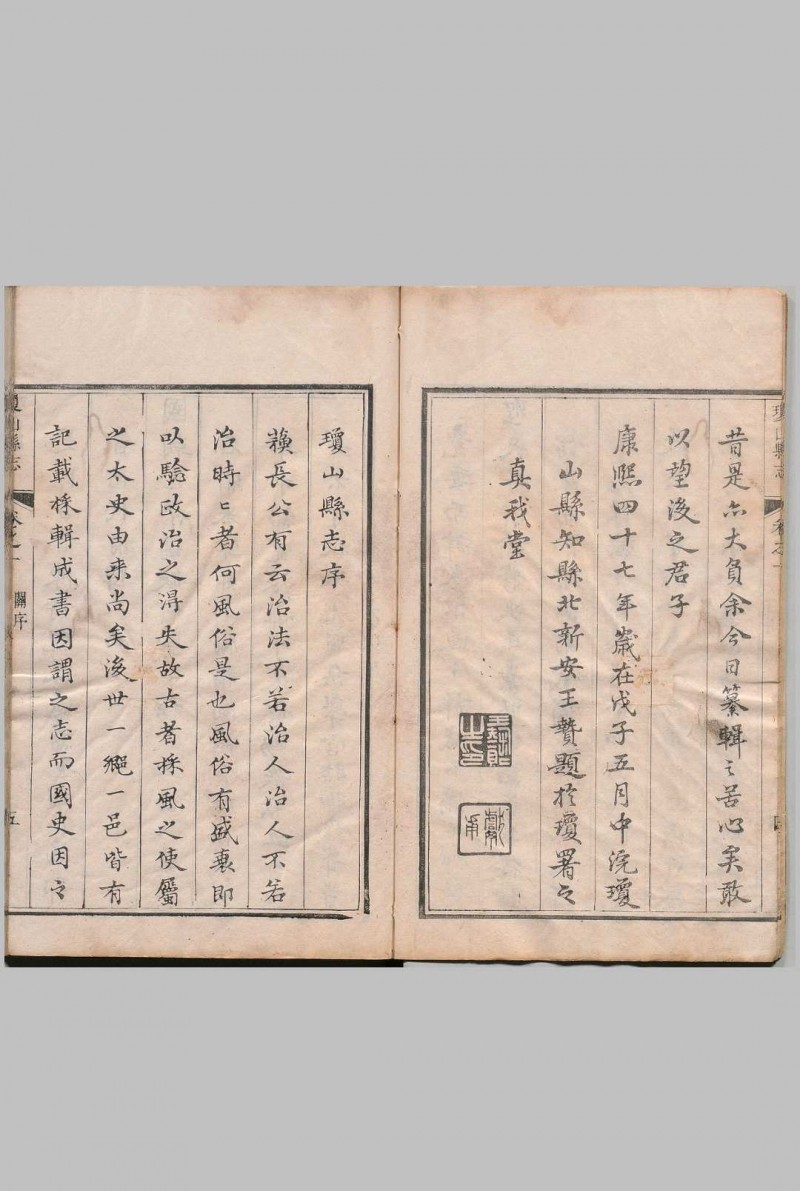 昔是亦大負余今日纂輯之苦心矣敢
以望後之君子
康熙四十七年歲在戊子五月中浣瓊
山縣知縣北新安王贄題於瓊署之
真我堂
瓊山縣志序
蘓長公有云治法不若治人治人不若
治時〻者何風俗是也風俗有盛衰即
以驗政治之淂失故古者採風之使屬
之太史由来尚矣後世一郷一邑皆有
記載採輯成書因謂之志而國史因之
瓊山縣志
卷之一
關序
五